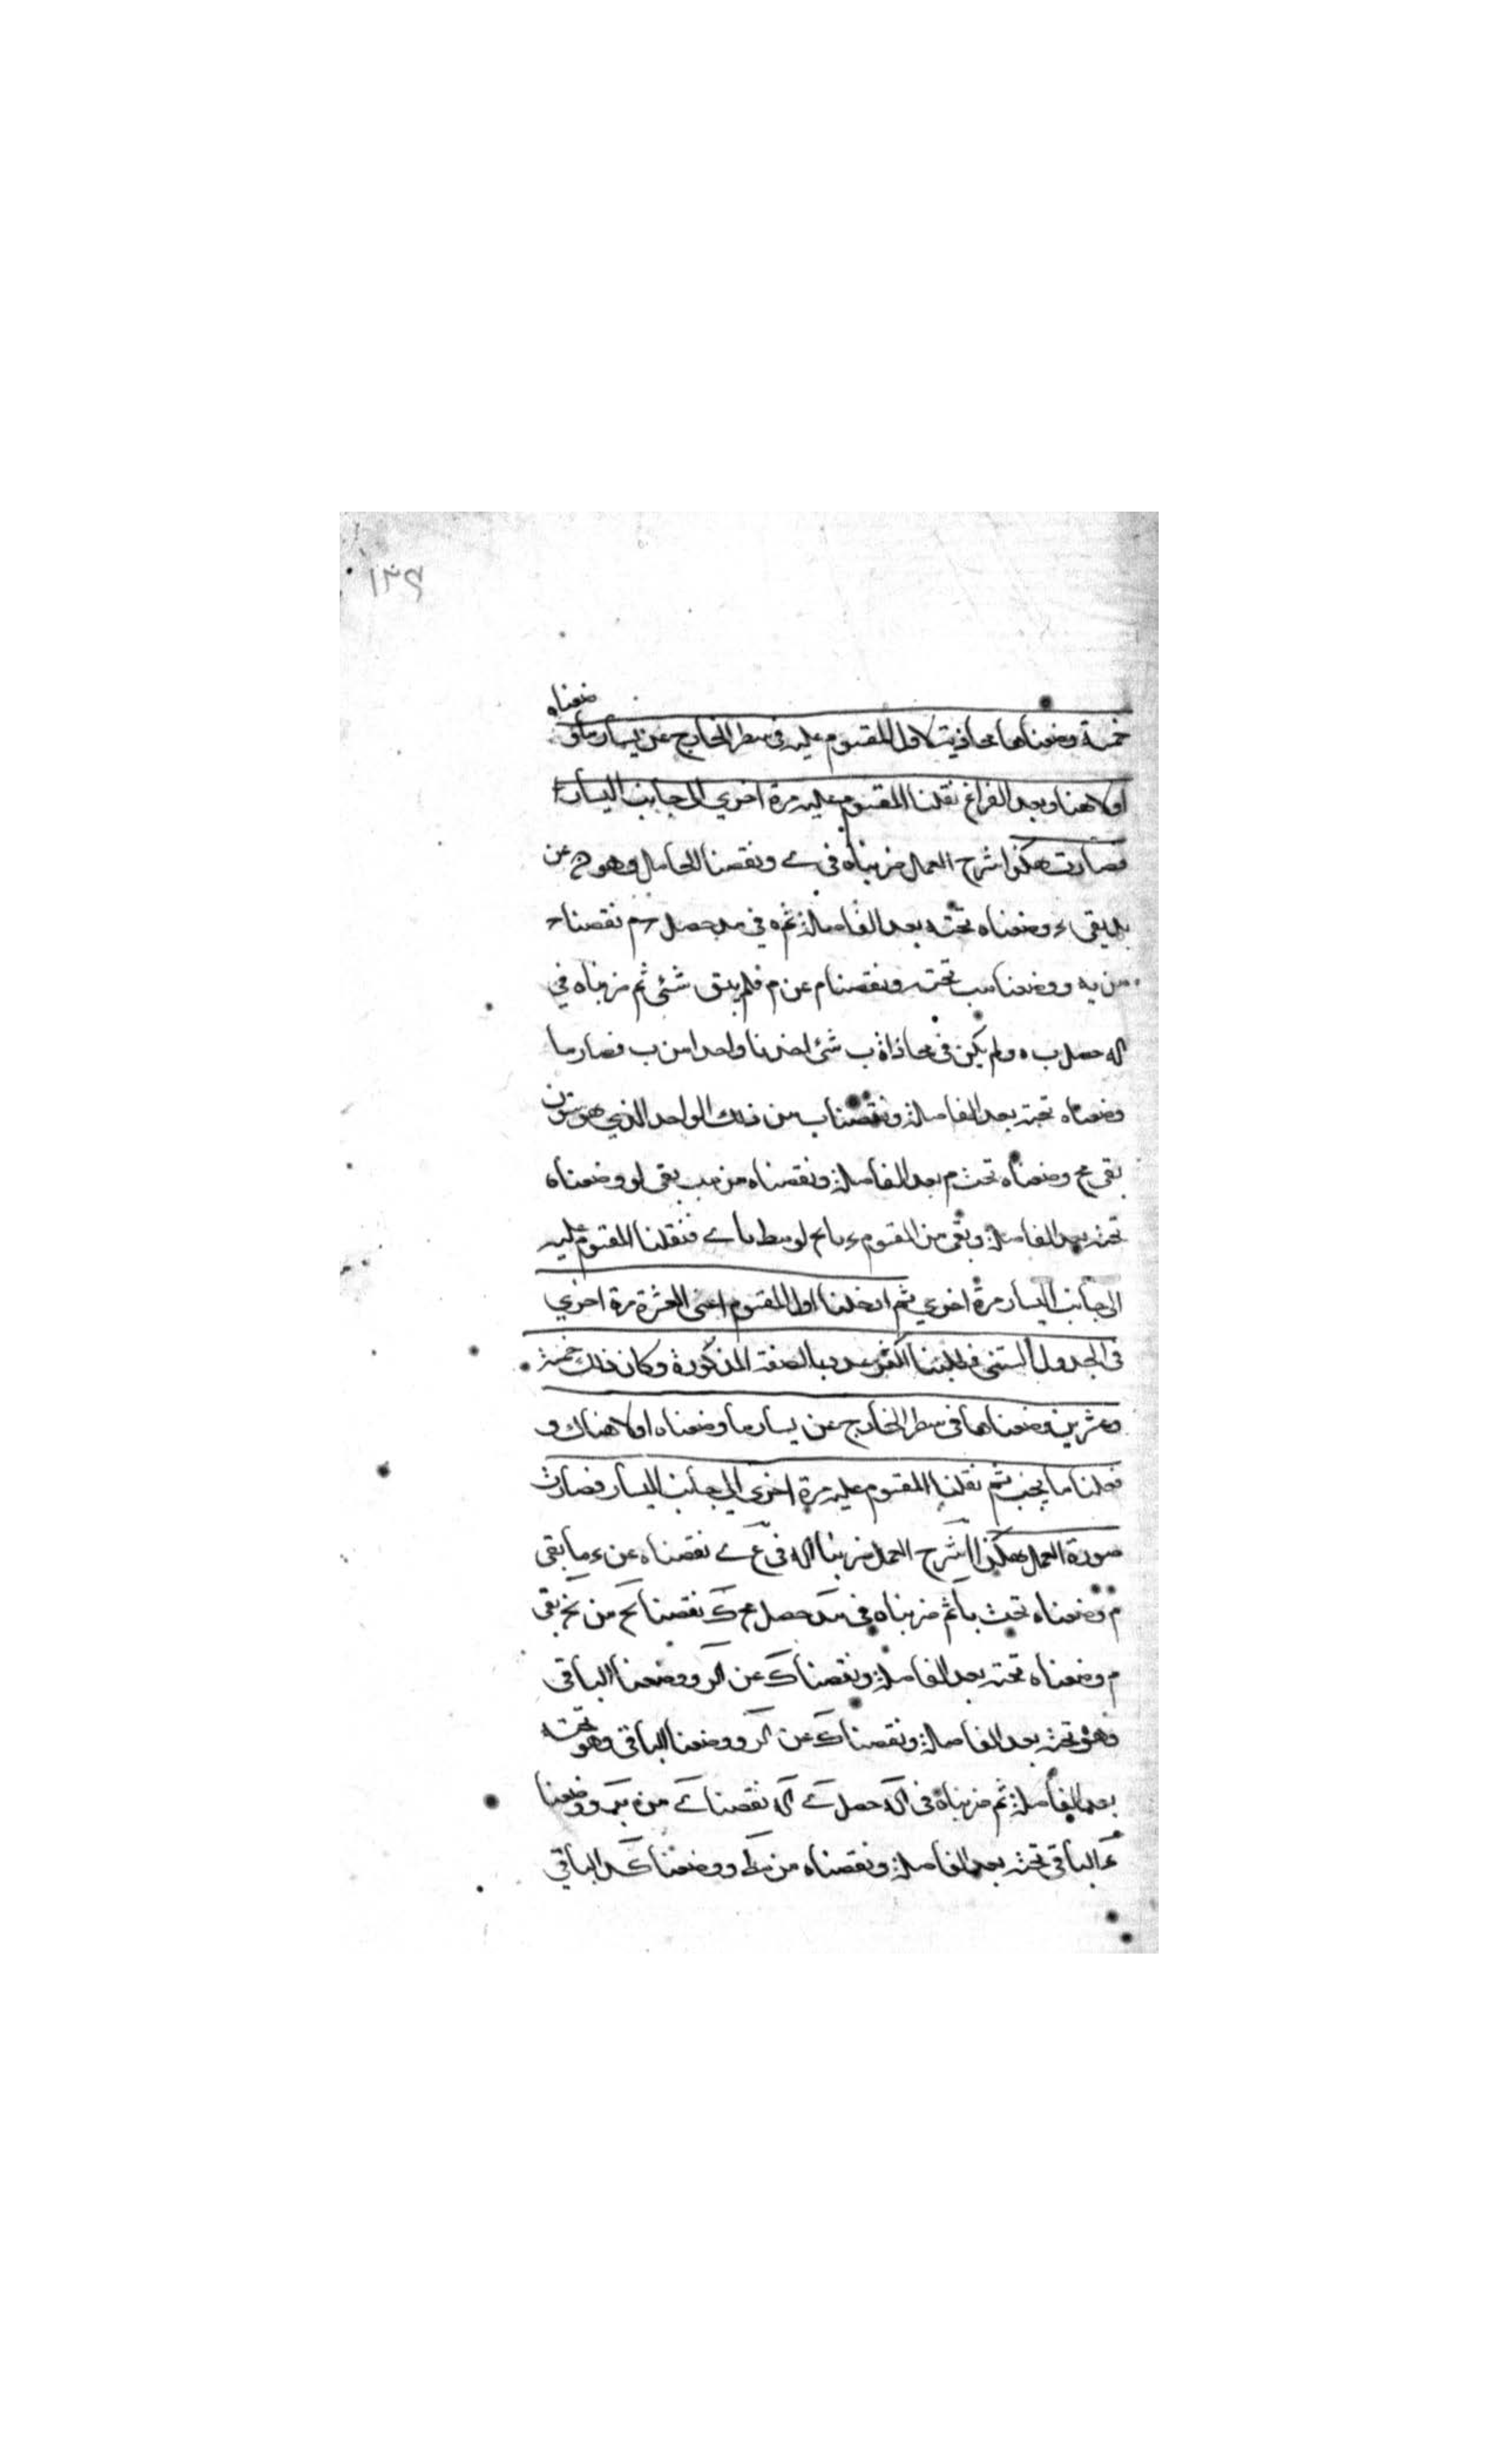 ١٣٩
خمسة وضعناها محاذية لاول المقسوم عليه في سطر الخارج عن يسار ما وضعناه
اولا هنا وبعد الفراغ نقلنا المقسوم عليه مرة اخري الى جانب اليسار
فصارت هكذا شرح العمل ضربناه في ے ونقصنا الحاصل وهو عن
يبقى وضعناه تحته بعد الفاصلة ثم ه في مد حصل نقصنا
من يه ووضعنا يب تحته ونقصنا م عن م فلم يبق شئ ثم ضربناه في
اله حصل ب ه ولم يكن في محاذاة ب شئ اخذنا واحدا من ب فصار ما
وضعناه تحته بعد الفاصلة ونقصنا ب من ذلك الواحد الذي هو ستون
بقي نح وضعناه تحت م بعد الفاصلة ونقصناه من يب بقي لو وضعناه
تحته بعد الفاصلة وبقي من المقسوم فنقلنا المقسوم عليه
الى جانب اليسار مرة اخري ثم ادخلنا اول المقسوم اعني العشرة مرة اخري
في الجدول الستيني فطلبنا اكثر عدد بالصفة المذكورة وكان ذلك خمسة
وعشرين وضعناها في سطر الخارج عن يسار ما وضعناه اولا هناك و
فعلنا ما يجب ثم نقلنا المقسوم عليه مرة اخري الى جانب اليسار فصارت
صورة العمل هكذا شرح العمل ضربنا اله في نقصناه عن ما بقي
م وضعناه تحت يا ثم ضربناه في مد حصل نقصنا يح من نح بقي
م وضعناه تحته بعد الفاصلة ونقصنا ك عن لو ووضعنا الباقي
وهو تحته بعد الفاصلة ونقصنا ك عن لو ووضعنا الباقي وهو تحته
بعد الفاصلة ثم ضربناه في اله حصل نقصنا ے من ووضعنا
الباقي تحته بعد الفاصلة ونقصناه من مط ووضعنا كد الباقي